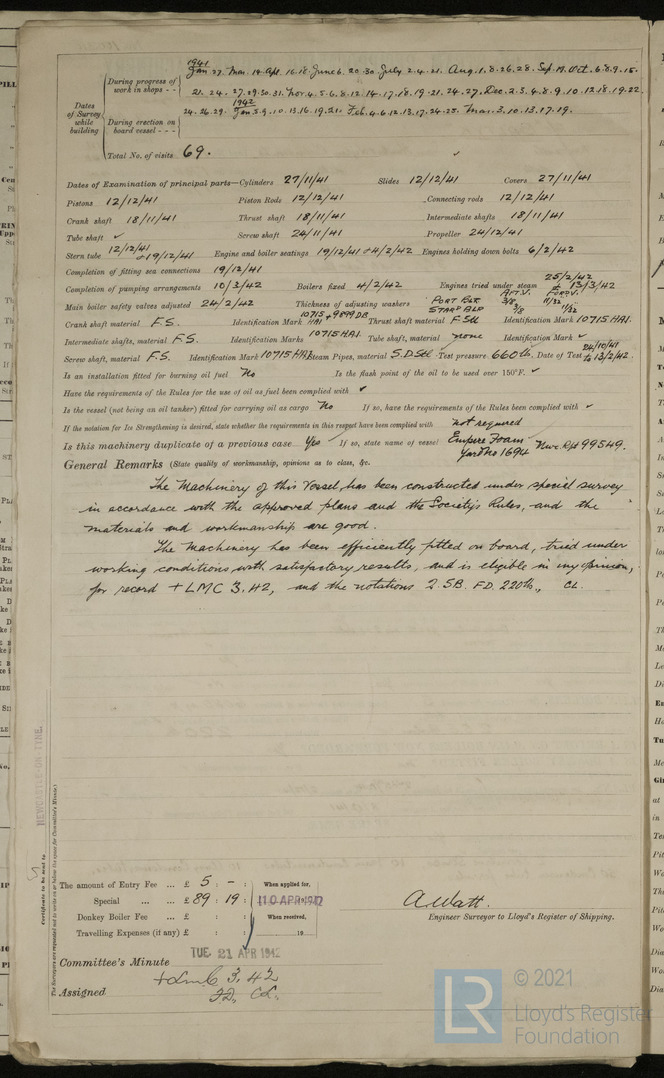 1941
During progress of work in shops - - Jan 27. Mar. 14. Apl. 16.18. June 6. 20.30. July 2.4.21. Aug. 1.8.26.28. Sep. 19. Oct. 6.8.9.15.
21. 24. 27.29.30.31. Nov. 4.5.6.8.12.14.17.18.19.21.24.27. Dec. 2.3.4.8.9.10.12.18.19.22.
1942
Dates of Survey while building
During erection on board vessel - - - 24.26.29. Jan 5.9.10.13.16.19.21. Feb. 4.6.12.13.17.24.25. Mar. 3.10.13.17.19.
Total No. of visits 69.
Dates of Examination of principal parts—Cylinders 27/11/41 Slides 12/12/41 Covers 27/11/41
Pistons 12/12/41 Piston Rods 12/12/41 Connecting rods 12/12/41
Crank shaft 18/11/41 Thrust shaft 18/11/41 Intermediate shafts 18/11/41
Tube shaft ✓ Screw shaft 24/11/41 Propeller 24/12/41
Stern tube 12/12/41 + 19/12/41 Engine and boiler seatings 19/12/41 + 4/2/42 Engines holding down bolts 6/2/42
Completion of fitting sea connections 19/12/41
Completion of pumping arrangements 10/3/42 Boilers fixed 4/2/42 Engines tried under steam 25/2/42 & 13/3/42
Main boiler safety valves adjusted 24/2/42 Thickness of adjusting washers Port Blr 3/8 11/32 Starb Blr 3/8 11/32 Aft.V. Ford V.
Crank shaft material F.S. Identification Mark 10715 + 9899 DB HAI Thrust shaft material F Stl Identification Mark 10715 HAI.
Intermediate shafts, material F.S. Identification Marks 10715 HAI. Tube shaft, material none Identification Mark ✓
Screw shaft, material F.S. Identification Mark 10715 HAI Steam Pipes, material S.D.Stl. Test pressure 660 lb. Date of Test 24/10/41 to 13/2/42.
Is an installation fitted for burning oil fuel No Is the flash point of the oil to be used over 150°F. ✓
Have the requirements of the Rules for the use of oil as fuel been complied with ✓
Is the vessel (not being an oil tanker) fitted for carrying oil as cargo No If so, have the requirements of the Rules been complied with ✓
If the notation for Ice Strengthening is desired, state whether the requirements in this respect have been complied with not required
Is this machinery duplicate of a previous case Yes If so, state name of vessel Empire Foam Yard No 1694 Nwc. Rpt 99549.
General Remarks (State quality of workmanship, opinions as to class, &c.
The Machinery of this Vessel, has been constructed under special survey
in accordance with the approved plans and the Society's Rules, and the
materials and workmanship are good.
The Machinery has been efficiently fitted on board, tried under
working conditions, with satisfactory results, and is eligible in my opinion,
for record + LMC 3.42, and the notations 2 SB. FD. 220lb., CL.
NEWCASTLE-ON-TYNE.
Certificate to be sent to
The Surveyors are requested not to write on or below the space for Committee's Minute.
The amount of Entry Fee ... £ 5 : - : When applied for,
Special ... ... £ 89 : 19 : 10 APR 1942
Donkey Boiler Fee ... £ : : When received,
Travelling Expenses (if any) £ : : 19
A. Watt.
Engineer Surveyor to Lloyd's Register of Shipping.
TUE. 21 APR 1942
Committee's Minute
+ Lmc 3.42
Assigned FD. CL.
LR
© 2021
Lloyd's Register
Foundation